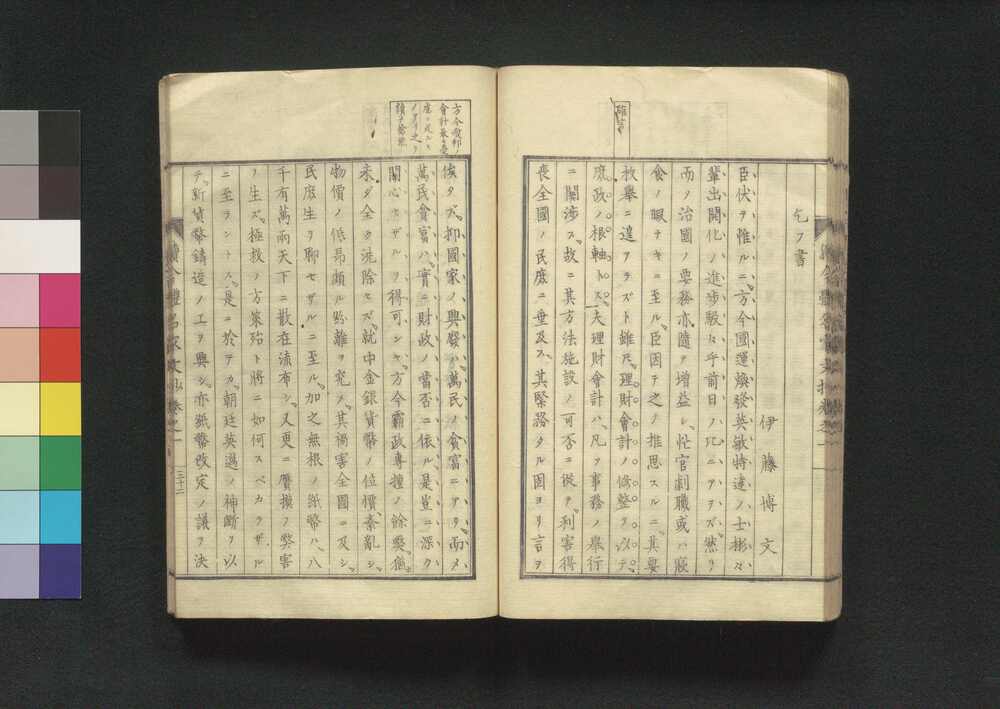 乞フ書
伊藤博文
臣伏ヲ惟ルニ方今國運煥發英敏特達ノ士彬々
輩出開化ノ進歩駸々乎前日ノ比ニアラズ然リ
而ヲ治國ノ要務亦隨ヲ増益シ忙官劇職或ハ寢
食ノ暇ナキニ至ル臣因テ之ヲ推思スルニ其要
枚擧ニ遑アラズト雖モ理財會計ノ修整ヲ以テ
庶政ノ根軸トス夫理財會計ハ凡ソ事務ノ擧行
ニ關渉ス故ニ其方法施設ノ可否ニ從ヲ利害得
喪全國ノ民庶ニ垂及ス其緊務タル固ヨリ言ヲ
俟タズ抑國家ノ興廢ハ萬民ノ貧富ニアリ而メ
萬民貧富ハ實ニ財政ノ當否ニ依ル是豈ニ深ク
關心セザルヲ得可ンヤ方今霸政專擅ノ餘弊猶
未ダ全ク洗除セズ就中金銀貨幣ノ位價紊亂シ
物價ノ低昂頗ル紛雜ヲ究メ其禍害全國ニ及シ
民庶生ヲ聊セザルニ至ル加之無根ノ紙幣ハ八
千有萬兩天下ニ散在流布シ又更ニ贋摸ノ弊害
ヲ生ズ極救ノ方策殆ト將ニ如何スベカラザル
ニ至ラントス是ニ於テカ朝廷英邁ノ神斷ヲ以
テ新貨幣鑄造ノ工ヲ興シ亦紙幣改定ノ議ヲ決
三十二